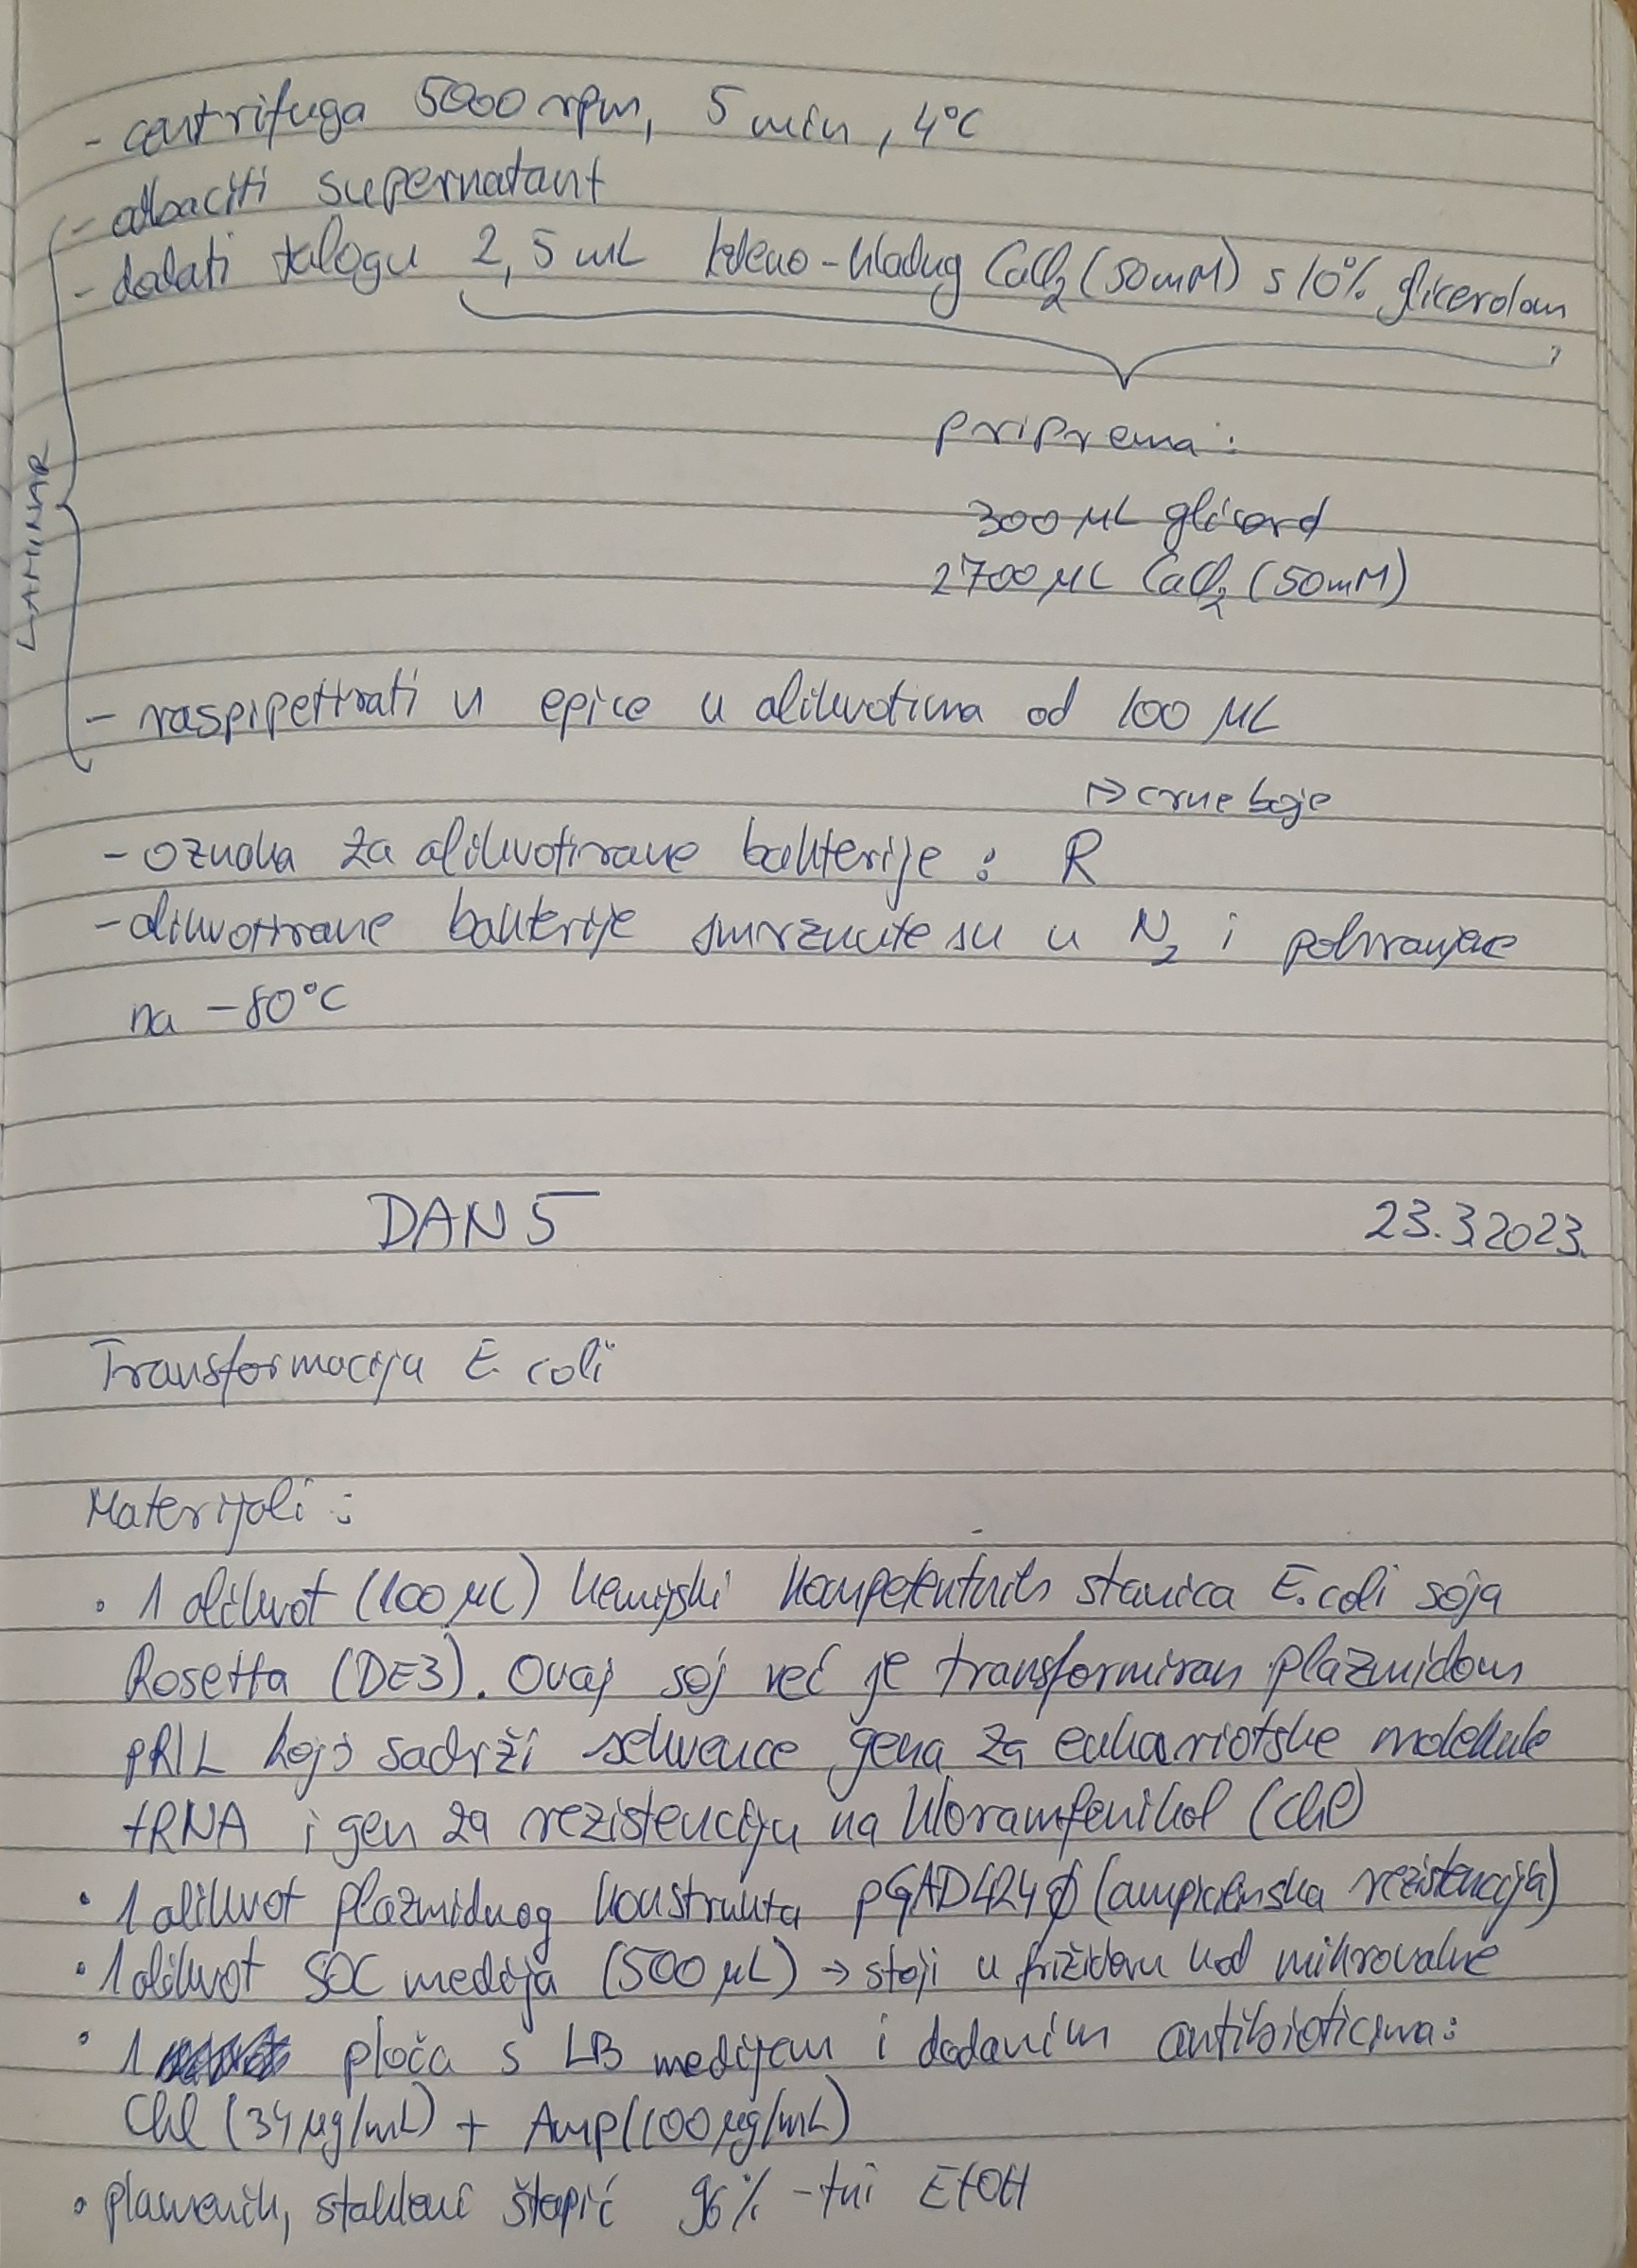 - centrifuga 5000 rpm, 5 min, 4°C
- odbaciti supernatant
- dodati talogu 2,5 mL ledeno-hladnog CaCl₂ (50mM) s 10% glicerolom
priprema:
300 µL glicerol
2700 µL CaCl₂ (50mM)
LAMINAR
- raspipetirati u epice u alikvotima od 100 µL
↳ crne boje
- oznaka za alikvotirane bakterije: R
- alikvotirane bakterije smrznute su u N₂ i pohranjene
na -80°C
DAN 5 23.3.2023.
Transformacija E coli
Materijali:
• 1 alikvot (100 µL) kemijski kompetentnih stanica E. coli soja
Rosetta (DE3). Ovaj soj već je transformiran plazmidom
pRIL koji sadrži sekvence gena za eukariotske molekule
tRNA i gen za rezistenciju na kloramfenikol (Chl)
• 1 alikvot plazmidnog konstrukta pGAD424ϕ (ampicilinska rezistencija)
• 1 alikvot SOC medija (500 µL) → stoji u frižideru kod mikrovalne
• 1 ploča s LB medijem i dodanim antibioticima:
Chl (34 µg/mL) + Amp (100 µg/mL)
• plamenik, stakleni štapić 96%-tni EtOH